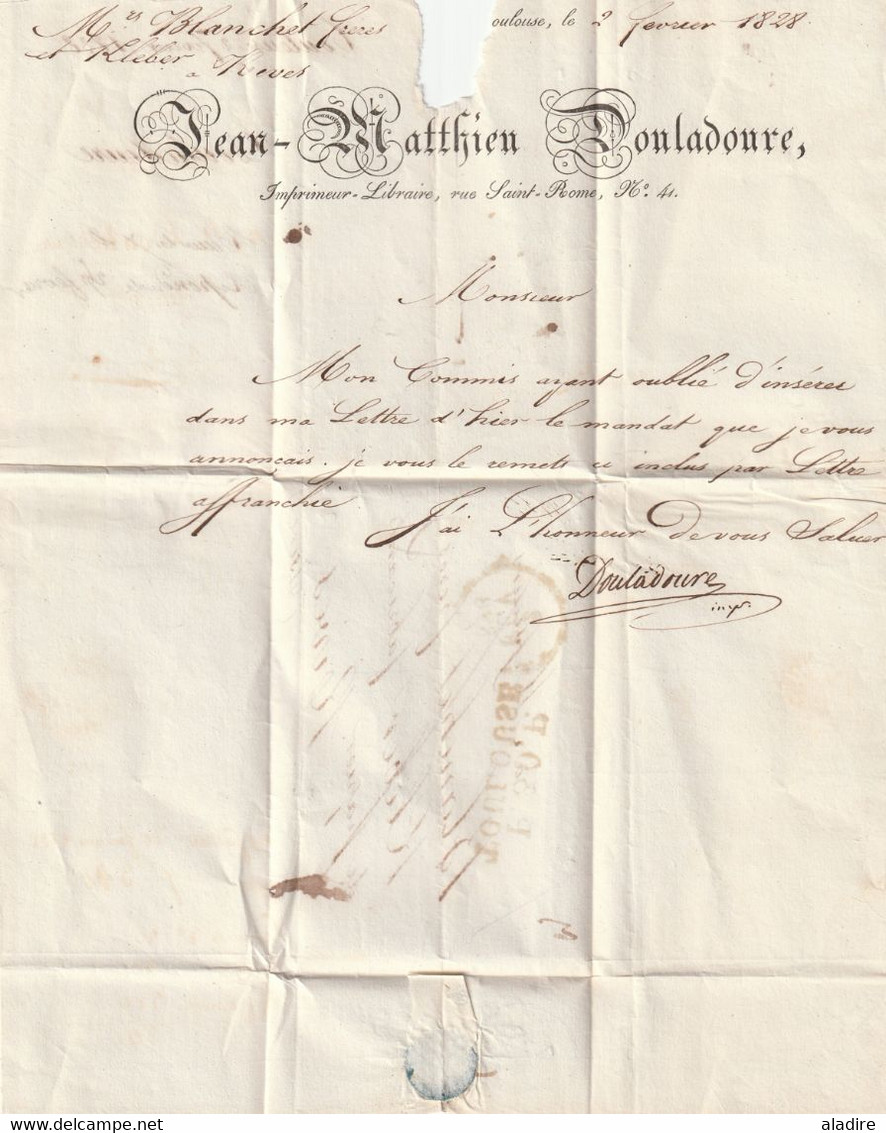 Mrs Blanchet freres
et Kleber
a Rives
oulouse, le 2 fevrier 1828
Jean-Matthieu Douladoure,
Imprimeur-Libraire, rue Saint-Rome, No. 41.
Monsieur
Mon Commis ayant oublié d'insérer
dans ma Lettre d'hier le mandat que je vous
annonçais. je vous le remets ci inclus par Lettre
affranchie
J'ai L'honneur de vous Saluer
Douladoure
impr.
P.30.P.
TOULOUSE
aladire
delcampe.net